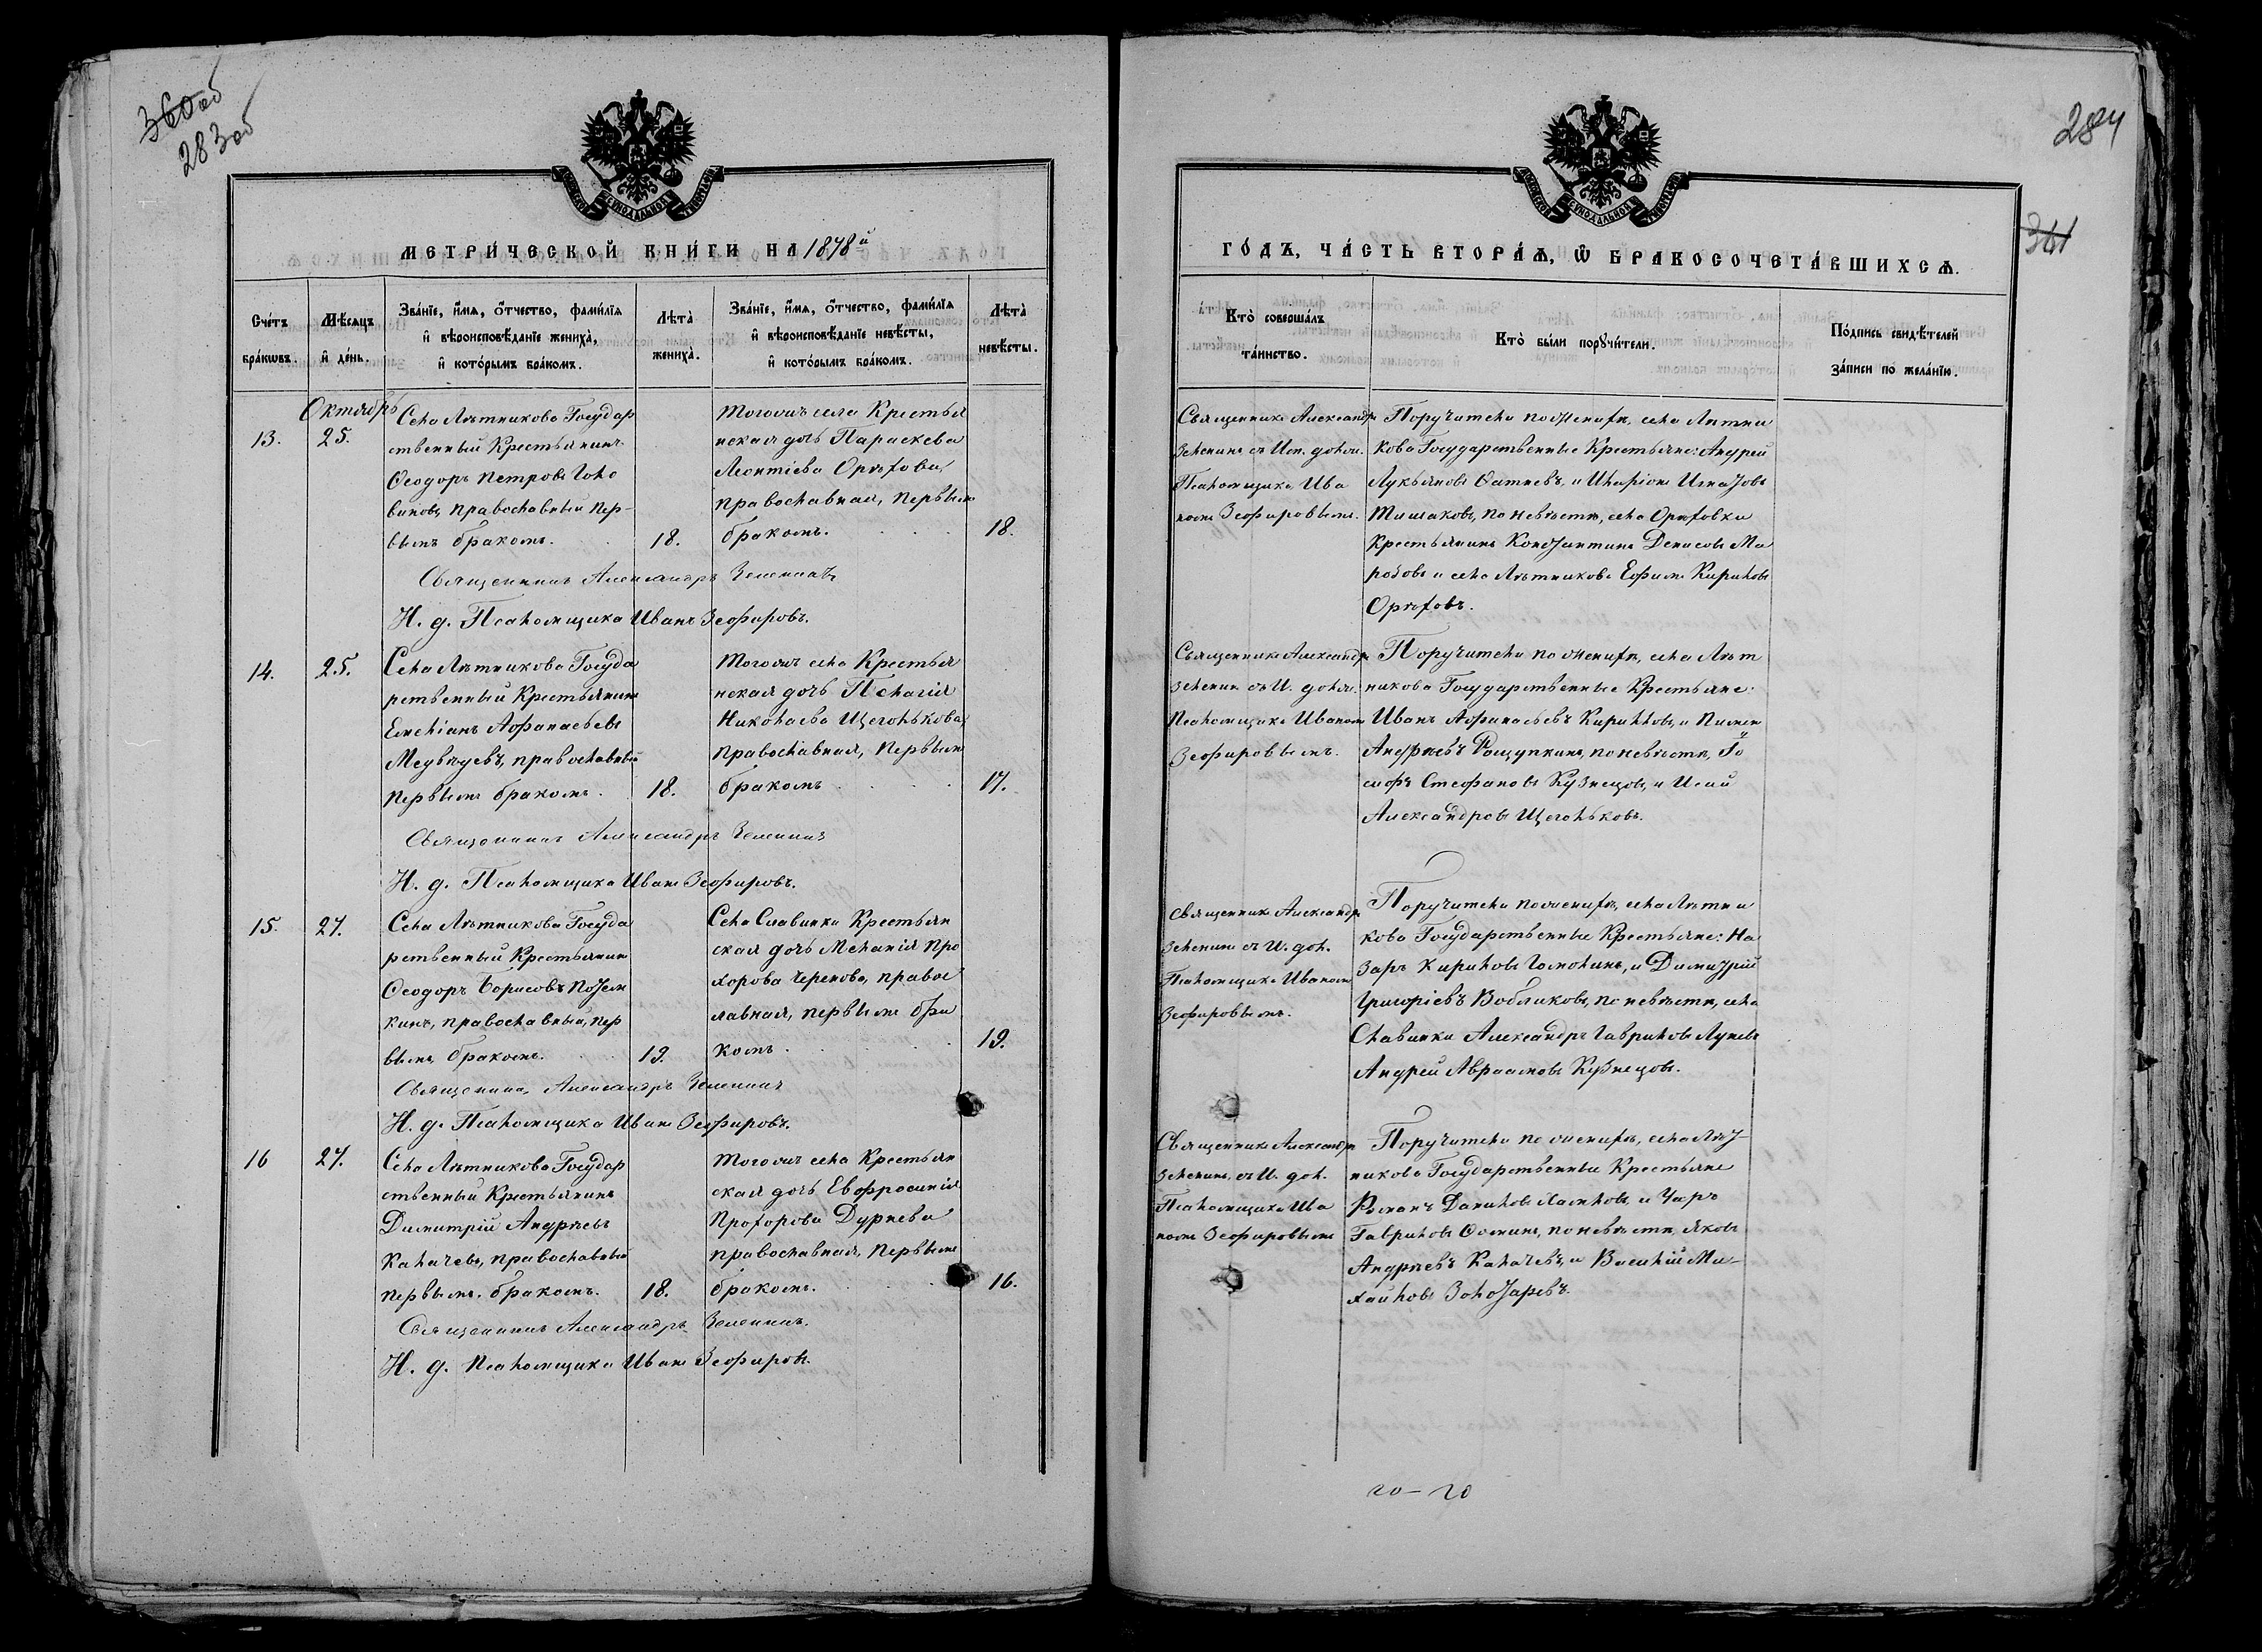 360 об
283 об
МОСКОВСКОЙ СѴНОДАЛЬНОЙ ТИПОГРАФІИ
МЕТРИ́ЧЕСКОЙ КНИ́ГИ НА 1878 й
Сче́тъ бра́кѡвъ.
Мѣ́сѧцъ и҆ де́нь.
Зва́нїе, и҆́мѧ, ѻ҆́тчество, фами́лїѧ
и҆ вѣроисповѣ́данїе жениха̀,
и҆ кото́рымъ бра́комъ.
Лѣ́та̀ жениха̀.
Зва́нїе, и҆́мѧ, ѻ҆́тчество, фами́лїѧ
и҆ вѣроисповѣ́данїе невѣ́сты,
и҆ кото́рымъ бра́комъ.
Лѣ́та̀ невѣ́сты.
13.
Октябрь
25.
Села Лѣтникова Государ
ственный Крестьянинъ
Ѳеодоръ Петровъ Голо
виновъ, православный пер-
вымъ бракомъ.
18.
Тогожъ села Крестья
нская дочь Параскева
Леонтіева Орѣхова,
православная, первымъ
бракомъ.
18.
Священникъ Александръ Зеленинъ
И. д. Псаломщика Иванъ Зефировъ.
14.
25.
Села Лѣтникова Госуда
рственный Крестьянинъ
Емеліанъ Аѳанасьевъ
Медвѣдевъ, православный
первымъ бракомъ.
18.
Тогожъ села Крестья
нская дочь Пелагія
Николаева Щеголькова,
православная, первымъ
бракомъ
17.
Священникъ Александръ Зеленинъ
И. д. Псаломщика Иванъ Зефировъ.
15.
27.
Села Лѣтникова Госуда
рственный Крестьянин
Ѳеодоръ Борисовъ Потем
кинъ, православный, пер
вымъ бракомъ.
19.
Села Славинки Крестьян
ская дочь Меланія Про
хорова Черенова, правос
лавная, первымъ бра
комъ
19.
Священникъ Александръ Зеленинъ
И. д. Псаломщика Иванъ Зефировъ.
16
27.
Села Лѣтникова Государ
ственный Крестьянинъ
Димитрій Андрѣевъ
Калачевъ, православный
первымъ бракомъ.
18.
Тогожъ села Крестьян
ская дочь Евфросинія
Прохорова Дурнева
православная, первымъ
бракомъ.
16.
Священникъ Александръ Зеленинъ.
И. д. Псаломщика Иванъ Зефировъ.
284
361
МОСКОВСКОЙ СѴНОДАЛЬНОЙ ТИПОГРАФІИ
ГО́ДЪ, ЧА́СТЬ ВТОРА́Ѧ, Ѡ҆ БРАКОСОЧЕТА́ВШИХСѦ.
Кто̀ соверша́лъ та́инство.
Кто̀ бы́ли порꙋчи́тели.
По́дпись свидѣ́телей за́писи по жела́нїю.
Священникъ Александръ
Зеленинъ съ Исп. долж.
Псаломщика Ива
номъ Зефировымъ.
Поручители по женихѣ, села Лѣтни
кова Государственные Крестьяне: Андрей
Лукьяновъ Ѳатѣевъ, и Иларіонъ Игнатовъ
Тишаковъ, по невѣстѣ, села Орѣховки
Крестьянинъ Константинъ Денисовъ Мо
розовъ и села Лѣтникова Ефимъ Кириловъ
Орѣховъ.
Священникъ Александръ
Зеленинъ съ И. долж.
Псаломщика Иваномъ
Зефировымъ.
Поручители по женихѣ, села Лѣт
никова Государственные Крестьяне:
Иванъ Аѳанасьевъ Кириловъ, и Пименъ
Андрѣевъ Рощупкинъ, по невѣстѣ, Іо
сифъ Стефановъ Кузнецовъ, и Исай
Александровъ Щегольковъ.
Священникъ Александръ
Зеленинъ съ И. дол.
Псаломщика Иваномъ
Зефировымъ.
Поручители по женихѣ, села Лѣтни
кова Государственные Крестьяне: На
заръ Кириловъ и Димитрій
Григоріевъ Вобликовъ, по невѣстѣ, села
Славинки Александръ Гавриловъ Луневъ
Андрей Авраамовъ Кузнецовъ.
Священникъ Александръ
Зеленинъ, съ И. дол.
Псаломщика Ива
номъ Зефировымъ
Поручители по женихѣ, села Лѣт-
никова Государственные Крестьяне
Романъ Даниловъ и
Гавриловъ Ѳоминъ, по невѣстѣ, Яковъ
Андрѣевъ Калачевъ, и Василій Ми-
хайловъ Золотаревъ.
20-20